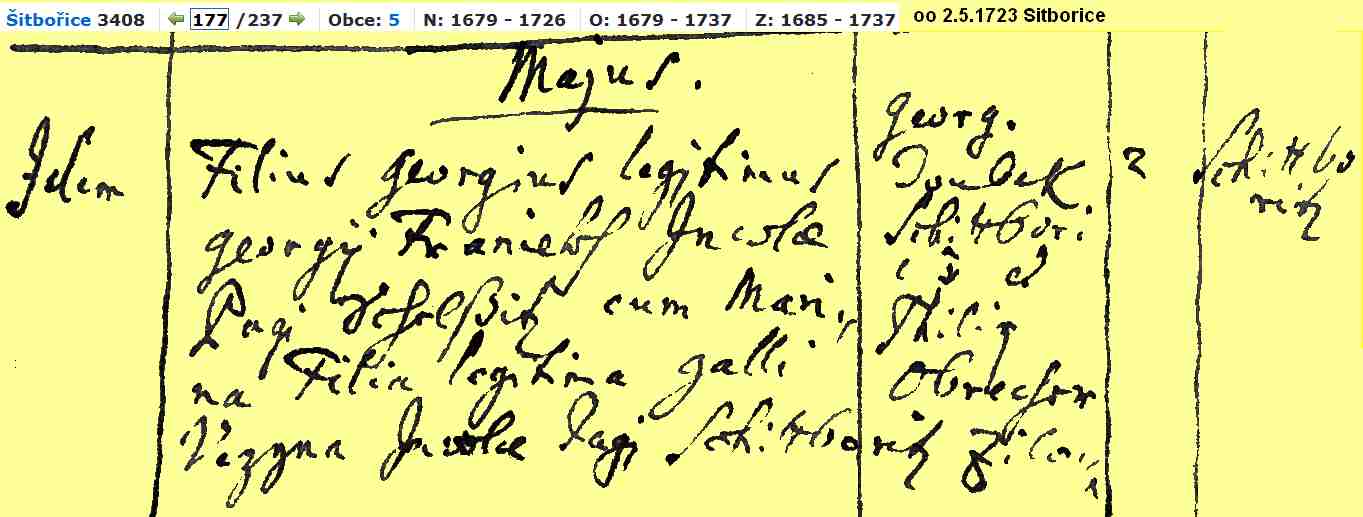 Šitbořice 3408 177 /237 Obce: 5 N: 1679 - 1726 O: 1679 - 1737 Z: 1685 - 1737 oo 2.5.1723 Sitborice
Majus.
Idem
Filius Georgius legitimus
Georgij Incolæ
Pagi cum Mari,
na Filia legitima Galli
Vezyna Incolæ Pagi Schittboritz
Georg.
Doubek
Schittbori
Philip
2
Schittbo
ritz